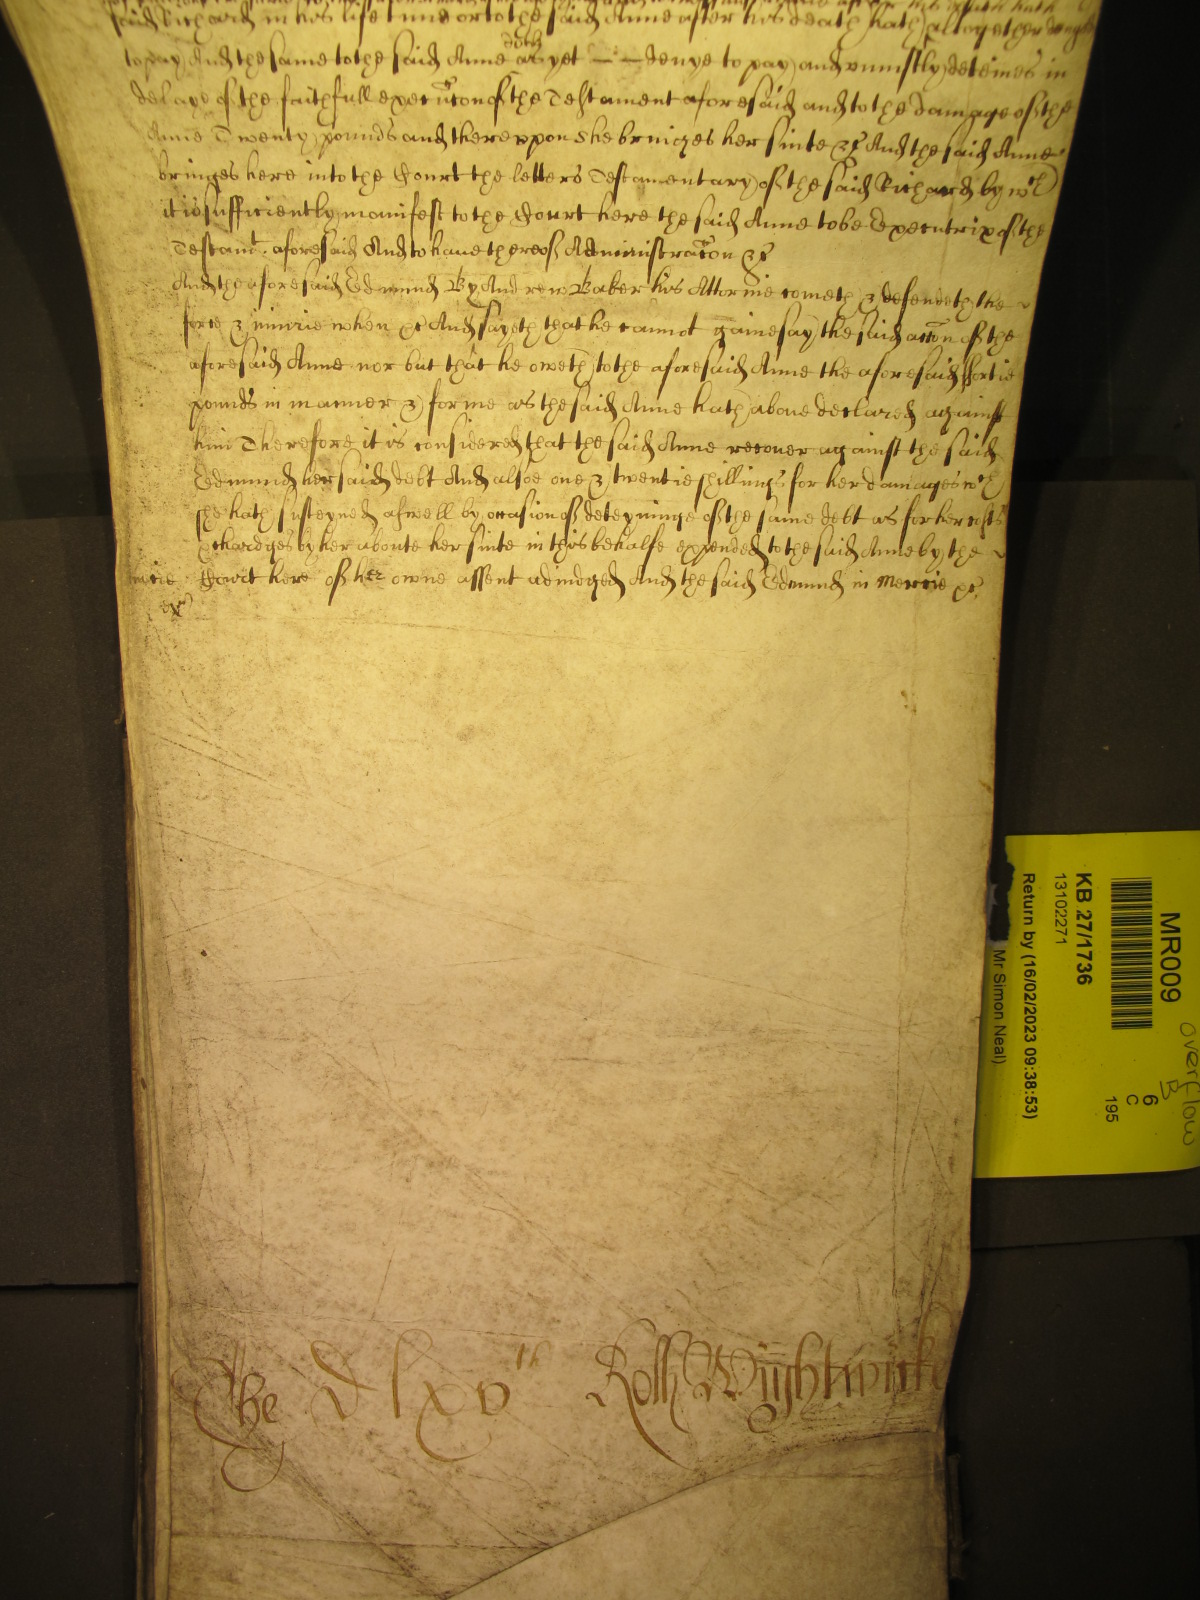 said Richard in his life time or to the said Anne after his death hath altogether
to pay And the same to the said Anne doth as yet — — denye to pay and uniustly deteines in
delaye of the faithfull execucon of the Testament aforesaid and to the damage of the
Anne Twenty pounds and thereuppon shee bringes her suite &c And the said Anne
bringes here into the Court the letters Testamentary of the said Richard by wch
it is sufficiently manifest to the Court here the said Anne to be Executrix of the
Testamt. aforesaid And to have thereof Administracon &c
And the aforesaid Edmund By Andrew Baker his Attornie cometh & defendeth the
force & iniurie when &c And sayeth that he cannot gainesay the said accon of the
aforesaid Anne nor but that he oweth to the aforesaid Anne the aforesaid ffortie
pounds in manner & forme as the said Anne hath above declared against
him Therefore it is considered that the said Anne recover against the said
Edmund her said debt And alsoe one & twentie shillings for her damages wch
she hath susteyned aswell by occasion of deteyninge of the same debt as for her costs
& chardges by her aboute her suite in this behalfe expended to the said Anne by the
mcie Court here of her owne assent adiudged And the said Edmund in Mercie &c.
The Dlxvth Roll Wightwicke
MR009
KB 27/1736
13102271
Return by (16/02/2023 09:38:53)
Mr Simon Neal)
6
C
195
overflow
B